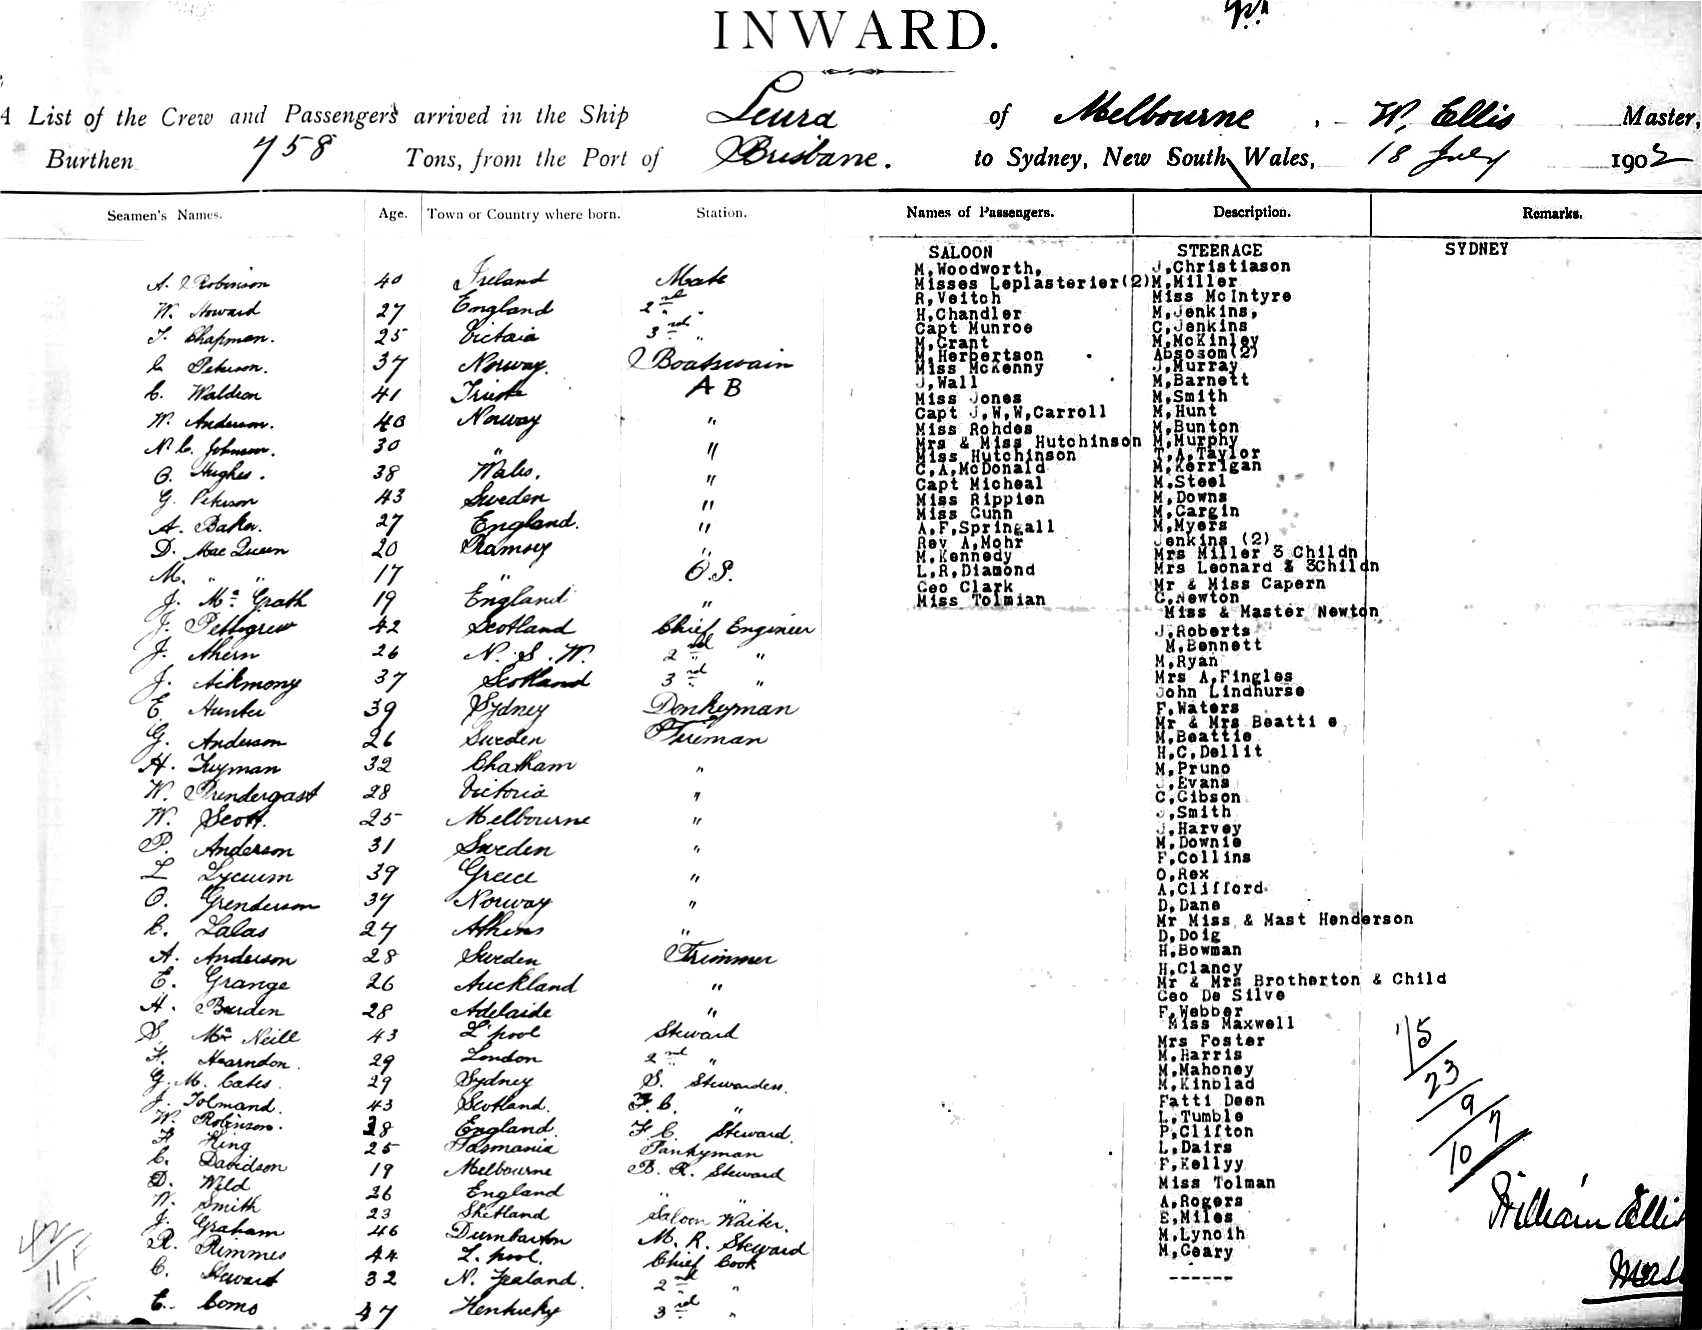 INWARD.
A List of the Crew and Passengers arrived in the Ship Leura of Melbourne, W. Ellis Master,
Burthen 758 Tons, from the Port of Brisbane. to Sydney, New South Wales, 18 July 1902
Seamen's Names. Age. Town or Country where born. Station.
A. Robinson 40 Ireland Mate
W. Howard 27 England 2nd "
T. Chapman. 25 Victoria 3rd "
C Peterson. 37 Norway. Boatswain
C. Waldron 41 A B
W. Anderson. 40 Norway "
N. C. Johnson. 30 " "
O. Hughes. 38 Wales. "
G. Peterson 43 Sweden "
A. Baker. 27 England. "
D. MacQueen 20 Ramsey "
M. " " 17 " O.S.
J. Mc Grath 19 England "
J. Pettigrew 42 Scotland Chief Engineer
J. Ahern 26 N. S. W. 2nd "
J. 37 Scotland 3rd "
E. Hunter 39 Sydney Donkeyman
G. Anderson 26 Sweden Fireman
H. 32 Chatham "
W. Prendergast 28 Victoria "
W. Scott. 25 Melbourne "
P. Anderson 31 Sweden "
L Lyceum 39 Greece "
O. Grenderson 37 Norway "
C. Lalas 27 Athens "
A. Anderson 28 Sweden Trimmer
E. Grange 26 Auckland "
H. Burden 28 Adelaide "
S. Mc Neill 43 L'pool Steward
F. Hearndon. 29 London 2nd "
G. M. Cates 29 Sydney S. Stewardess.
J. Tolmand. 43 Scotland. F.C. "
W. Robinson. 38 England. F C. Steward.
F King 25 Tasmania Pantryman
C. Davidson 19 Melbourne B. R. Steward
D. Wild 26 England " "
W. Smith 23 Shetland Saloon Waiter.
J. Graham 46 Dumbarton M. R. Steward
R. Rimmer 44 L. pool. Chief Cook
C. Steward 32 N. Zealand. 2nd "
E. Coms 47 Kentucky 3rd "
Names of Passengers. Description. Remarks.
SALOON STEERAGE SYDNEY
M,Woodworth,
Misses Leplasterier(2)
R,Veitch
H,Chandler
Capt Munroe
M,Grant
M,Herbertson
Miss McKenny
J,Wall
Miss Jones
Capt J,W,W,Carroll
Miss Rohdes
Mrs & Miss Hutchinson
Miss Hutchinson
C,A,McDonald
Capt Micheal
Miss Rippien
Miss Gunn
A,F,Springall
Rev A,Mohr
M,Kennedy
L,R,Diamond
Geo Clark
Miss Tolmian
J,Christiason
M,Miller
Miss McIntyre
M,Jenkins,
C,Jenkins
M,McKinley
Absosom(2)
J,Murray
M,Barnett
M,Smith
M,Hunt
M,Bunton
M,Murphy
T,A,Taylor
M,Kerrigan
M,Steel
M,Downs
M,Cargin
M,Myers
Jenkins (2)
Mrs Miller 3 Childn
Mrs Leonard & 3Childn
Mr & Miss Capern
C,Newton
Miss & Master Newton
J,Roberts
M,Bennett
M,Ryan
Mrs A,Fingles
John Lindhurse
F,Waters
Mr & Mrs Beatti e
M,Beattie
H,C,Dellit
M,Pruno
J,Evans
C,Gibson
J,Smith
J,Harvey
M,Downie
F,Collins
O,Rex
A,Clifford
D,Dane
Mr Miss & Mast Henderson
D,Doig
H,Bowman
H,Clancy
Mr & Mrs Brotherton & Child
Geo De Silve
F,Webber
Miss Maxwell
Mrs Foster
M,Harris
M,Mahoney
M,Kinblad
Fatti Deen
L,Tumble
P,Clifton
L,Dairs
F,Kellyy
Miss Tolman
A,Rogers
E,Miles
M,Lynoih
M,Geary
------
15
23
9/7
10
William Ellis